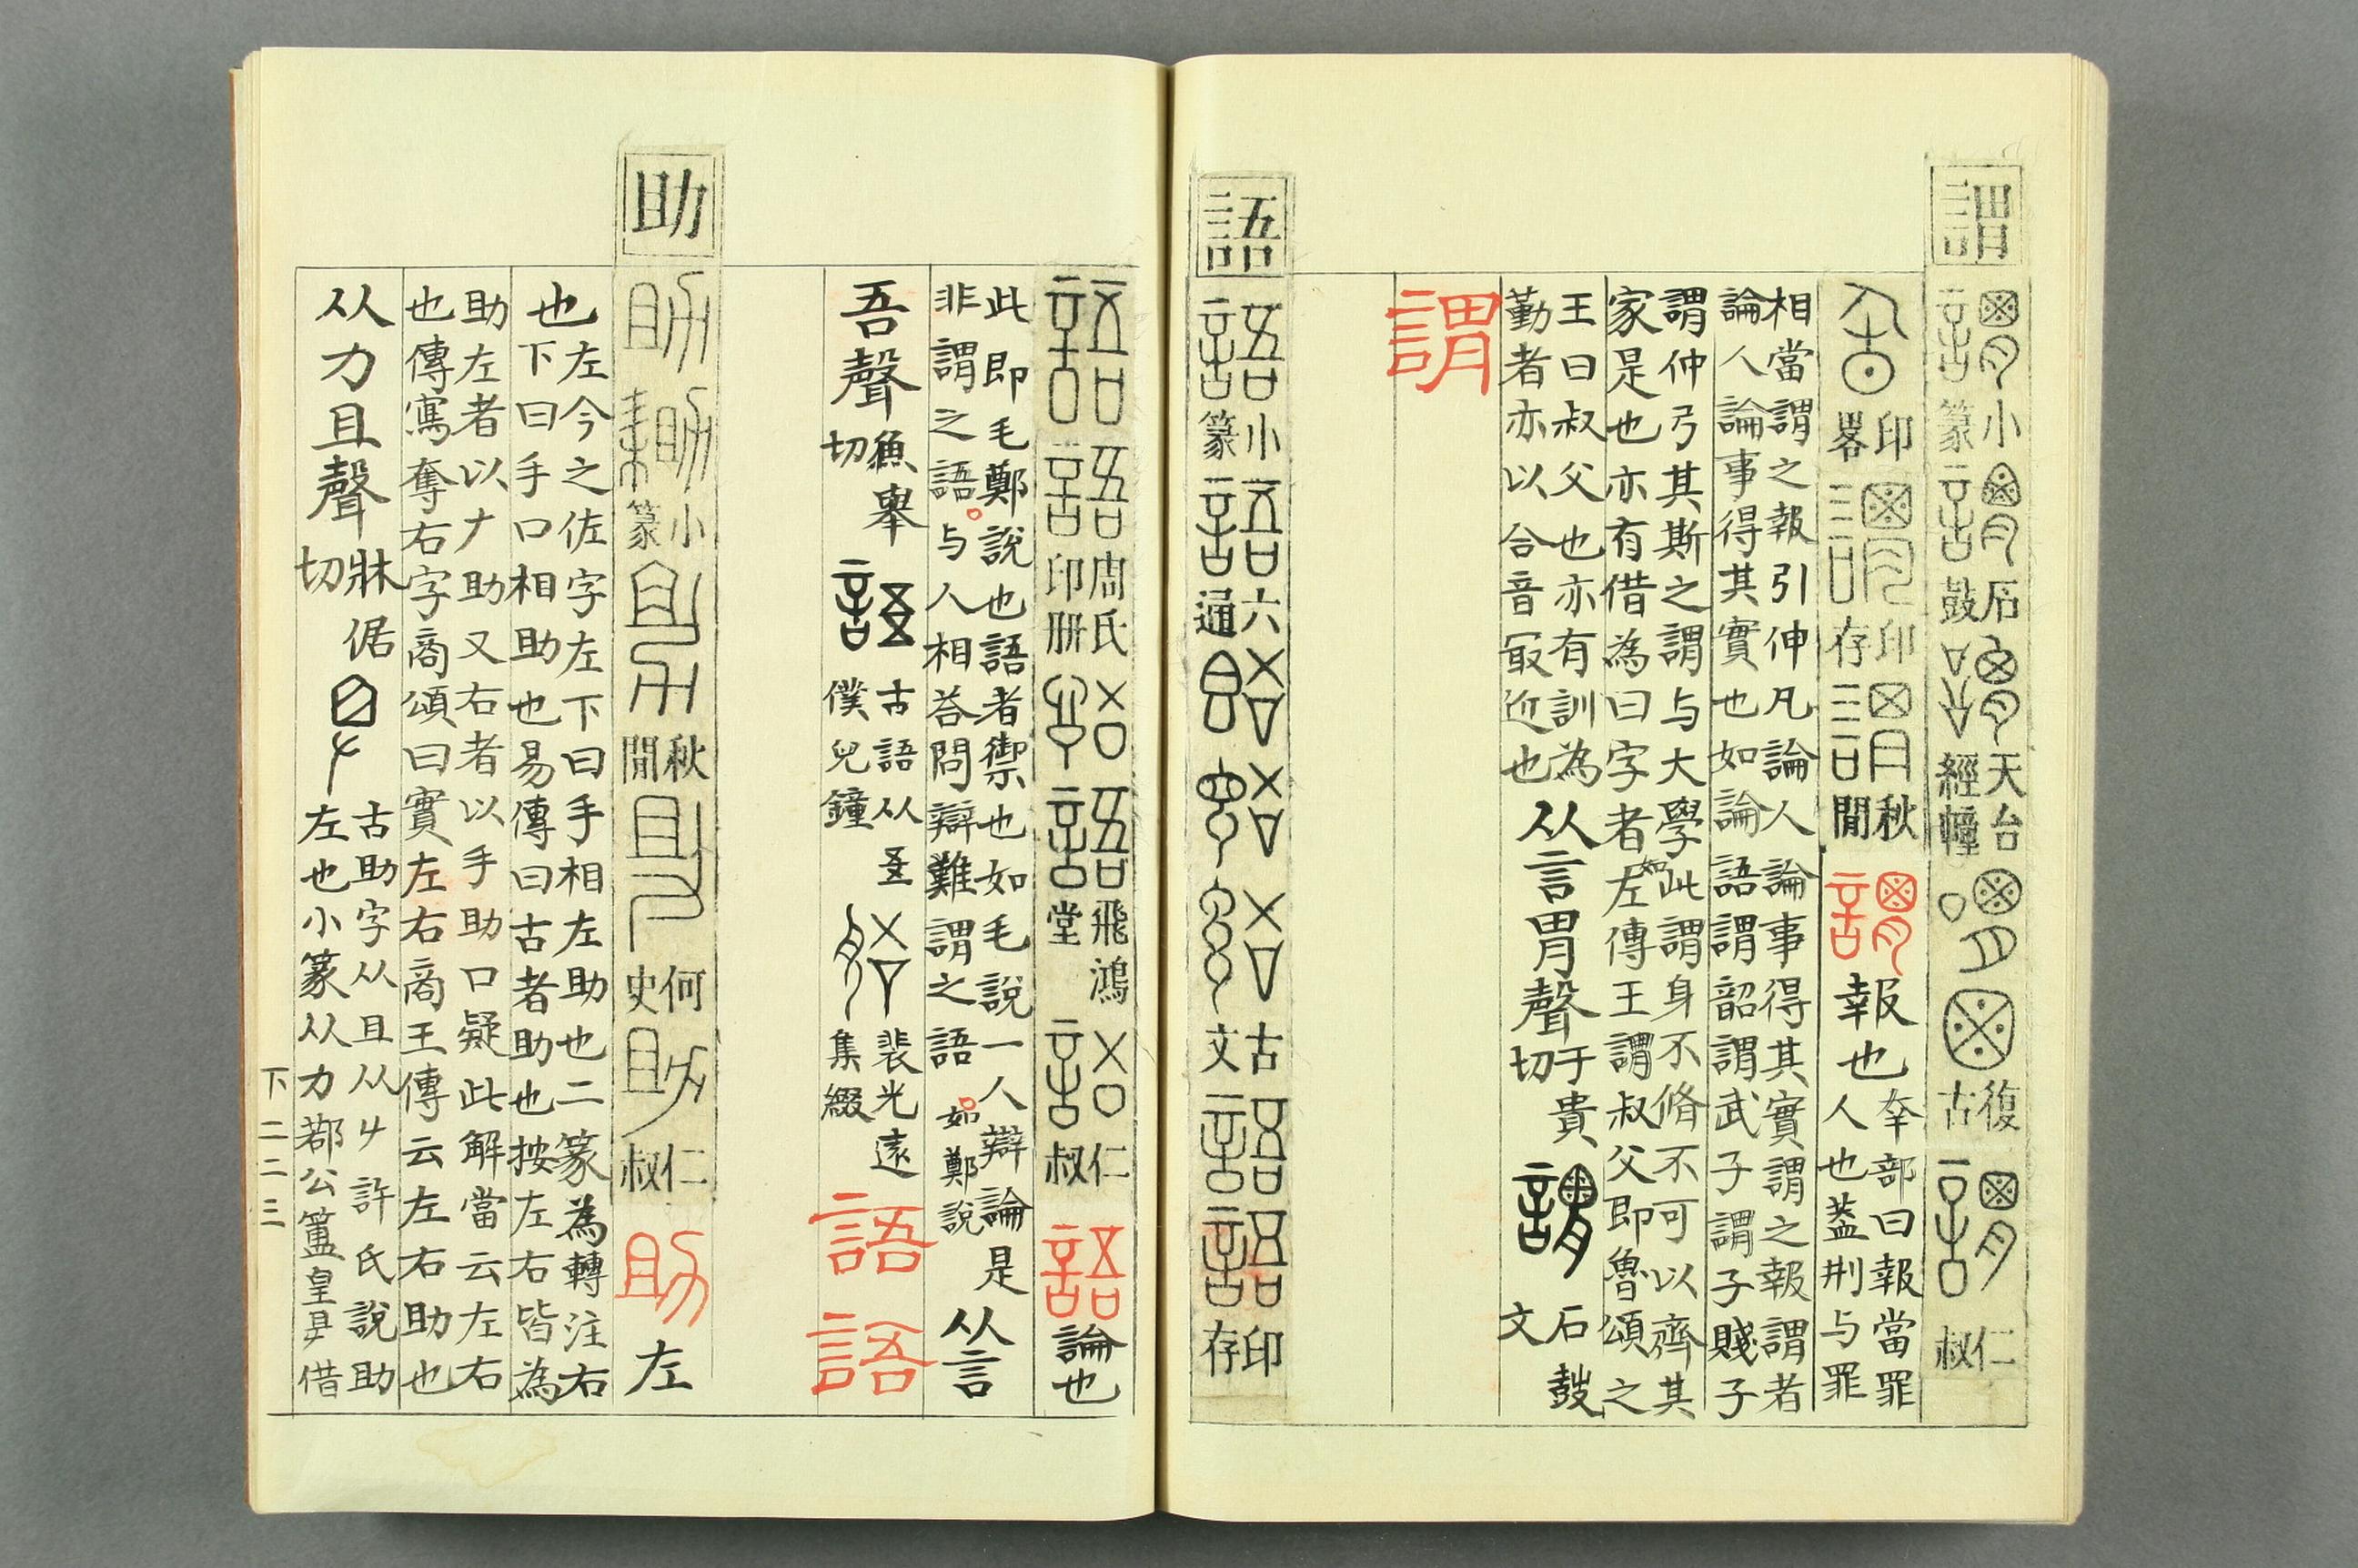 謂
小篆
石鼓
天台經幢
復古
仁叔
印畧
印存
秋閒
報也
㚔部曰報當罪
人也蓋刑与罪
相當謂之報引伸凡論人論事得其實謂之報謂者
論人論事得其實也如論語謂韶謂武子謂子賤子
謂仲弓其斯之謂与大學如此謂身不脩不可以齊其
家是也亦有借為曰字者左傳王謂叔父即魯頌之
王曰叔父也亦有訓為
勤者亦以合音冣近也
从言胃聲
于貴切
石鼓文
謂
語
語
小篆
六通
古文
印存
周氏印册
飛鴻堂
仁叔
論也
此即毛鄭說也語者禦也如毛說一人辯論是
非謂之語与人相荅問辯難謂之語如鄭說
从言
吾聲
魚舉切
古語从㕦
僕兒鐘
裴光遠
集綴
語
語
助
小篆
秋閒
何史
仁叔
助
左
也
左今之佐字左下曰手相左助也二篆為轉注右
下曰手口相助也易傳曰古者助也按左右皆為
助左者以𠂇助又右者以手助口疑此解當云左右
也傳寫奪右字商頌曰實左右商王傳云左右助也
从力且聲
牀倨切
古助字从且从𠂇許氏說助
左也小篆从力鄀公簠皇且借
下二二三